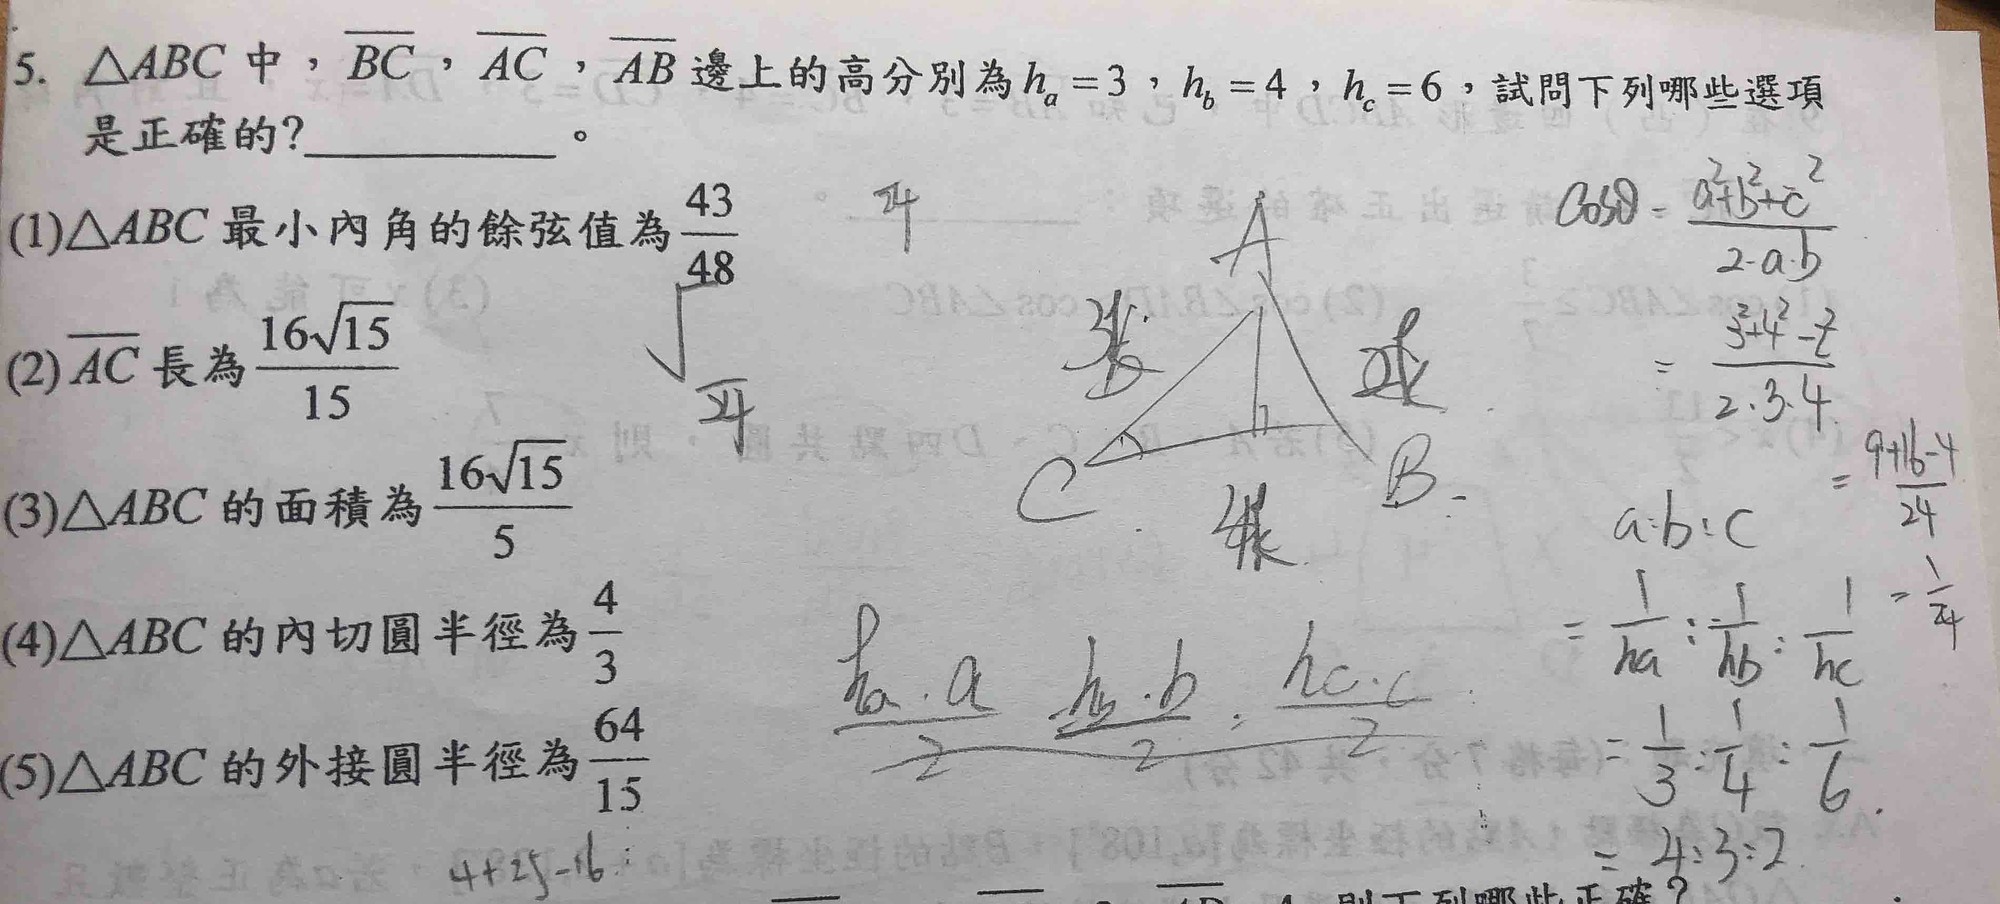 5. △ABC 中，BC，AC，AB 邊上的高分別為 hₐ=3，h_b=4，h_c=6，試問下列哪些選項
是正確的?__________。
(1)△ABC 最小內角的餘弦值為 43/48
(2) AC 長為 16√15/15
(3)△ABC 的面積為 16√15/5
(4)△ABC 的內切圓半徑為 4/3
(5)△ABC 的外接圓半徑為 64/15
4+25-16
24
√
24
A
C
B
4k
ha·a/2 hb·b/2 : hc·c/2
cosθ = a²+b²+c²/2·a·b
= 3²+4²-2²/2·3·4
= 9+16-4/24
= 1/24
a:b:c
= 1/ha : 1/hb : 1/hc
= 1/3 : 1/4 : 1/6
= 4:3:2
則下列哪些正確?